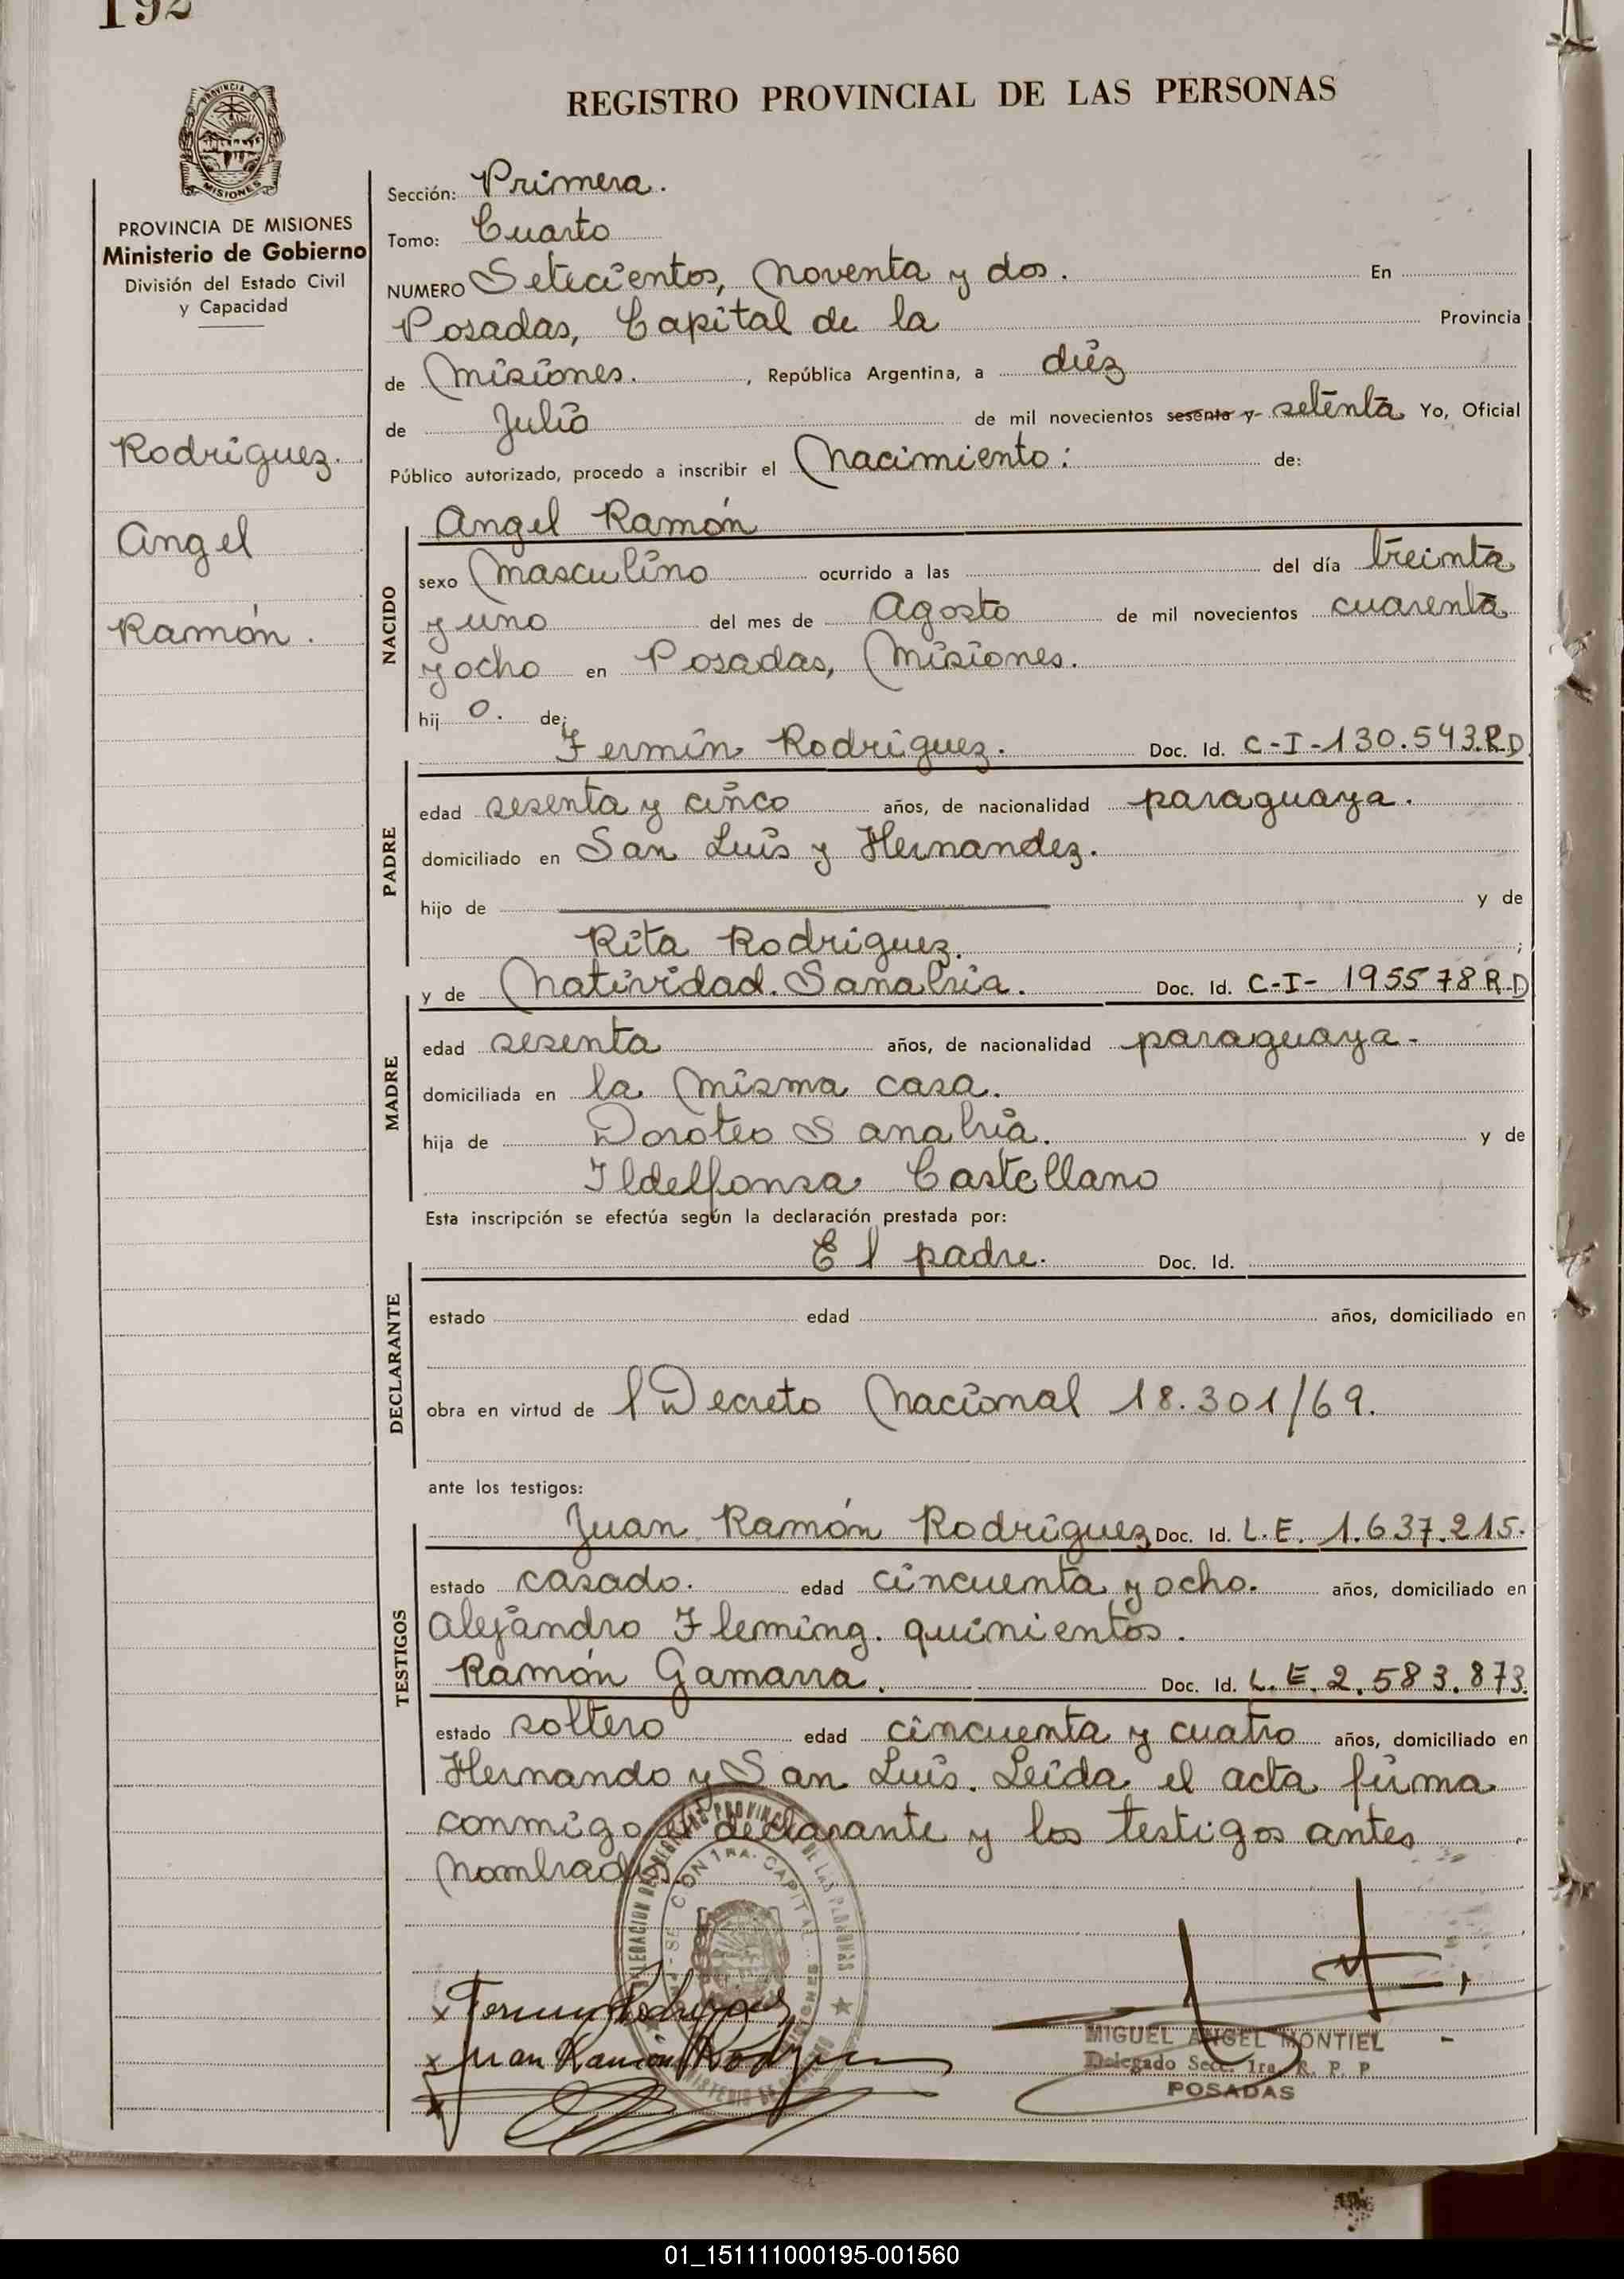 192
REGISTRO PROVINCIAL DE LAS PERSONAS
PROVINCIA DE MISIONES
Ministerio de Gobierno
División del Estado Civil
y Capacidad
Rodríguez.
Angel
Ramón.
Sección: Primera.
Tomo: Cuarto
NUMERO Setecientos, Noventa y dos. En
Posadas, Capital de la Provincia
de Misiones. , República Argentina, a diéz
de Julio de mil novecientos sesenta y setenta Yo, Oficial
Público autorizado, procedo a inscribir el Nacimiento: de:
Angel Ramón
NACIDO
sexo Masculino ocurrido a las del día treinta
y uno del mes de Agosto de mil novecientos cuarenta
y ocho en Posadas, Misiones.
hij o. de:
Fermín Rodríguez. Doc. Id. C-I-130.543.R.D
PADRE
edad sesenta y cinco años, de nacionalidad paraguaya.
domiciliado en San Luis y Hernandez.
hijo de y de
Rita Rodriguez. ;
y de Natividad Sanabria. Doc. Id. C-I- 195578 R.D
MADRE
edad sesenta años, de nacionalidad paraguaya-
domiciliada en la misma casa.
hija de Doroteo Sanabria. y de
Ildelfonsa Castellano
Esta inscripción se efectúa según la declaración prestada por:
El padre. Doc. Id.
DECLARANTE
estado edad años, domiciliado en
obra en virtud de l Decreto Nacional 18.301/69.
ante los testigos:
Juan Ramón Rodríguez Doc. Id. L.E. 1.637.215.
TESTIGOS
estado casado. edad cincuenta y ocho. años, domiciliado en
Alejandro Fleming. quinientos.
Ramón Gamarra. Doc. Id. L.E. 2.583.873.
estado soltero edad cincuenta y cuatro años, domiciliado en
Hernando y San Luis. Leída el acta firma
conmigo el declarante y los testigos antes
nombrados.
Fermin Rodriguez
Juan Ramón Rodriguez
MIGUEL ANGEL MONTIEL
Delegado Secc. 1ra. R. P. P
POSADAS
01_151111000195-001560